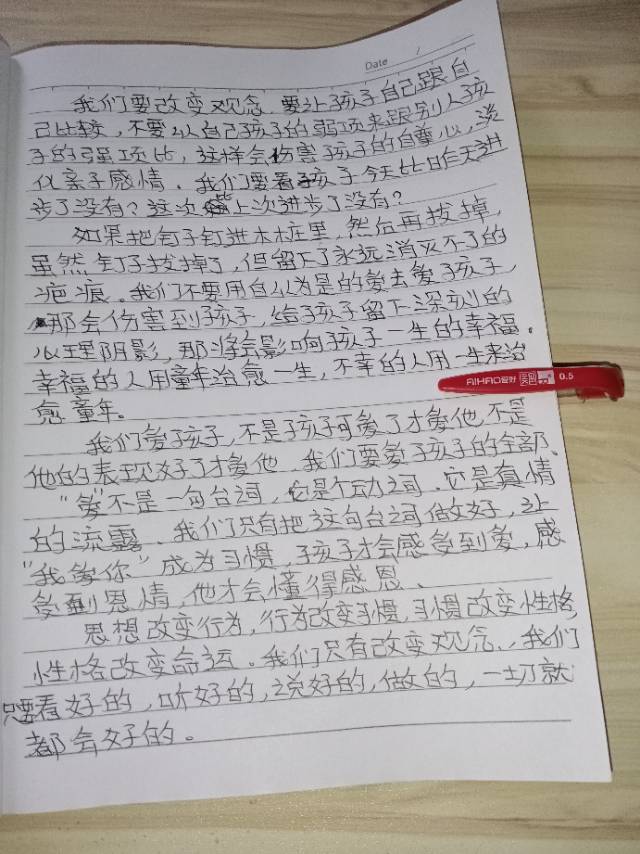 Date /
我们要改变观念 要让孩子自己跟自
己比较,不要以自己孩子的弱项来跟别人孩
子的强项比,这样会伤害孩子的自尊心,淡
化亲子感情.我们要看孩子今天比昨天进
步了没有?这次 上次进步了没有?
如果把钉子钉进木桩里,然后再拔掉,
虽然钉子拔掉了,但留下了永远消灭不了的
疤痕。我们不要用自以为是的爱去爱孩子,
那会伤害到孩子,给孩子留下深刻的
心理阴影,那将会影响孩子一生的幸福.
幸福的人用童年治愈一生,不幸的人用一生来治
愈童年。
AIHAO爱好 0.5
我们爱孩子,不是孩子可爱了才爱他,不是
他的表现好了才爱他 我们要爱孩子的全部、
“爱”不是一句台词,它是个动词.它是真情
的流露、我们只有把这句台词做好,让
“我爱你”成为习惯,孩子才会感受到爱,感
受到恩情,他才会懂得感恩、
思想改变行为,行为改变习惯,习惯改变性格,
性格改变命运。我们只有改变观念、我们
只要看好的,听好的,说好的,做的,一切就
都会好的。